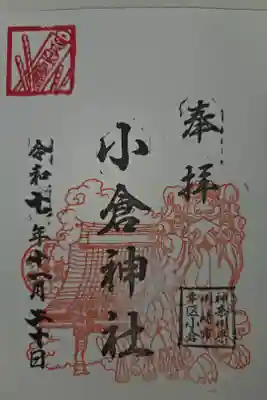 奉拝
小倉神社
令和七年十一月三十日
神奈川県
川崎市
幸区小倉